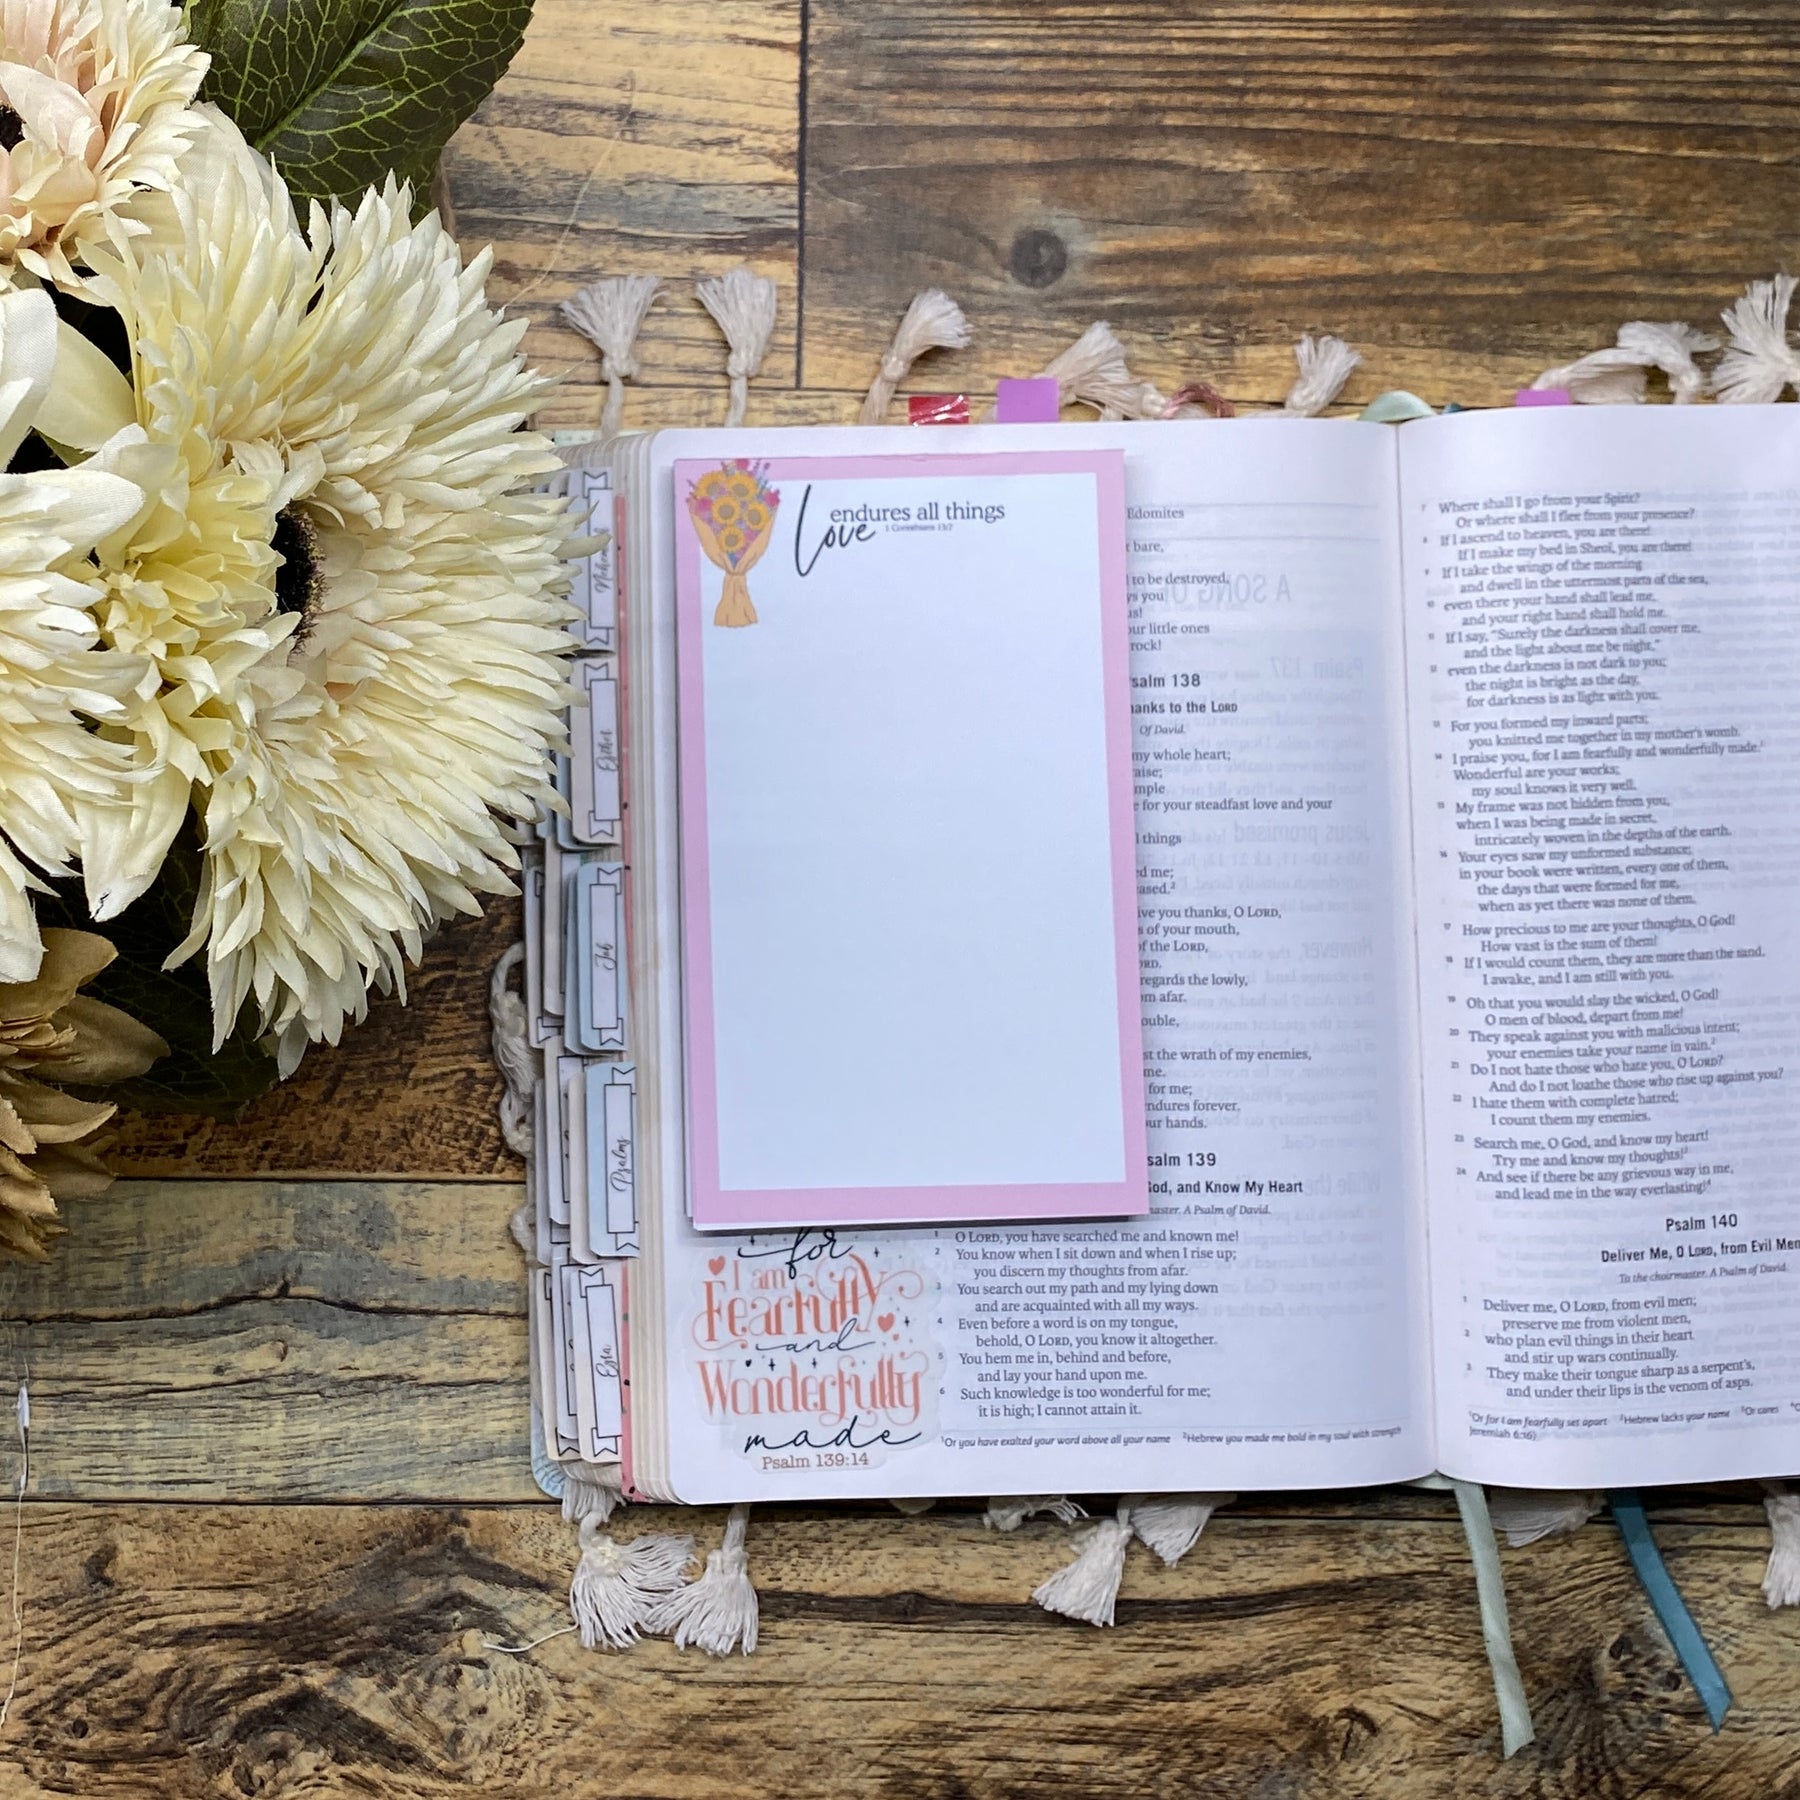 Nehemiah
Esther
Job
Psalms
Ezra
Love endures all things
1 Corinthians 13:7
Edomites
bare,
to be destroyed,
you
us!
our little ones
rock!
Psalm 138
Thanks to the LORD
Of David.
my whole heart;
for your steadfast love and your
things
me;
give you thanks, O LORD,
of your mouth,
of the LORD,
regards the lowly,
st the wrath of my enemies,
me.
for me;
endures forever.
hands.
Psalm 139
God, and Know My Heart
A Psalm of David.
1 O LORD, you have searched me and known me!
2 You know when I sit down and when I rise up;
you discern my thoughts from afar.
3 You search out my path and my lying down
and are acquainted with all my ways.
4 Even before a word is on my tongue,
behold, O LORD, you know it altogether.
5 You hem me in, behind and before,
and lay your hand upon me.
6 Such knowledge is too wonderful for me;
it is high; I cannot attain it.
1 Or you have exalted your word above all your name 2 Hebrew you made me bold in my soul with strength
for
I am
Fearfully
and
Wonderfully
made
Psalm 139:14
7 Where shall I go from your Spirit?
Or where shall I flee from your presence?
8 If I ascend to heaven, you are there!
If I make my bed in Sheol, you are there!
9 If I take the wings of the morning
and dwell in the uttermost parts of the sea,
10 even there your hand shall lead me,
and your right hand shall hold me.
11 If I say, “Surely the darkness shall cover me,
and the light about me be night,”
12 even the darkness is not dark to you;
the night is bright as the day,
for darkness is as light with you.
13 For you formed my inward parts;
you knitted me together in my mother's womb.
14 I praise you, for I am fearfully and wonderfully made.1
Wonderful are your works;
my soul knows it very well.
15 My frame was not hidden from you,
when I was being made in secret,
intricately woven in the depths of the earth.
16 Your eyes saw my unformed substance;
in your book were written, every one of them,
the days that were formed for me,
when as yet there was none of them.
17 How precious to me are your thoughts, O God!
How vast is the sum of them!
18 If I would count them, they are more than the sand.
I awake, and I am still with you.
19 Oh that you would slay the wicked, O God!
O men of blood, depart from me!
20 They speak against you with malicious intent;
your enemies take your name in vain.2
21 Do I not hate those who hate you, O LORD?
And do I not loathe those who rise up against you?
22 I hate them with complete hatred;
I count them my enemies.
23 Search me, O God, and know my heart!
Try me and know my thoughts!3
24 And see if there be any grievous way in me,
and lead me in the way everlasting!4
Psalm 140
Deliver Me, O LORD, from Evil Men
To the choirmaster. A Psalm of David.
1 Deliver me, O LORD, from evil men;
preserve me from violent men,
2 who plan evil things in their heart
and stir up wars continually.
3 They make their tongue sharp as a serpent's,
and under their lips is the venom of asps.
1 Or for I am fearfully set apart 2 Hebrew lacks your name 3 Or cares
Jeremiah 6:16)